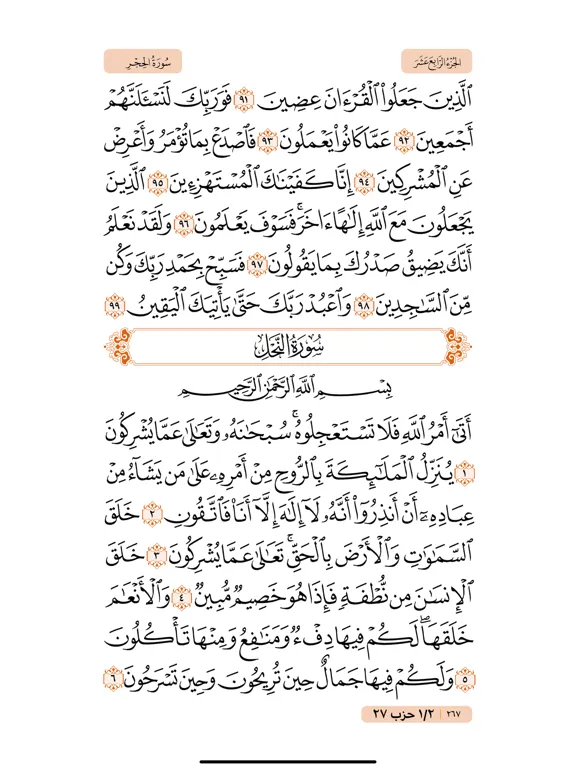 الجزء الرابع عشر
سورة الحجر
الَّذِينَ جَعَلُوا۟ الْقُرْءَانَ عِضِينَ ٩١ فَوَرَبِّكَ لَنَسْـَٔلَنَّهُمْ
أَجْمَعِينَ ٩٢ عَمَّا كَانُوا۟ يَعْمَلُونَ ٩٣ فَاصْدَعْ بِمَا تُؤْمَرُ وَأَعْرِضْ
عَنِ الْمُشْرِكِينَ ٩٤ إِنَّا كَفَيْنَٰكَ الْمُسْتَهْزِءِينَ ٩٥ الَّذِينَ
يَجْعَلُونَ مَعَ اللَّهِ إِلَٰهًا ءَاخَرَ ۚ فَسَوْفَ يَعْلَمُونَ ٩٦ وَلَقَدْ نَعْلَمُ
أَنَّكَ يَضِيقُ صَدْرُكَ بِمَا يَقُولُونَ ٩٧ فَسَبِّحْ بِحَمْدِ رَبِّكَ وَكُن
مِّنَ السَّٰجِدِينَ ٩٨ وَاعْبُدْ رَبَّكَ حَتَّىٰ يَأْتِيَكَ الْيَقِينُ ٩٩
سُورَةُ النَّحْلِ
بِسْمِ اللَّهِ الرَّحْمَٰنِ الرَّحِيمِ
أَتَىٰٓ أَمْرُ اللَّهِ فَلَا تَسْتَعْجِلُوهُ ۚ سُبْحَٰنَهُۥ وَتَعَٰلَىٰ عَمَّا يُشْرِكُونَ
١ يُنَزِّلُ الْمَلَٰٓئِكَةَ بِالرُّوحِ مِنْ أَمْرِهِۦ عَلَىٰ مَن يَشَآءُ مِنْ
عِبَادِهِۦٓ أَنْ أَنذِرُوٓا۟ أَنَّهُۥ لَآ إِلَٰهَ إِلَّآ أَنَا۠ فَاتَّقُونِ ٢ خَلَقَ
السَّمَٰوَٰتِ وَالْأَرْضَ بِالْحَقِّ ۚ تَعَٰلَىٰ عَمَّا يُشْرِكُونَ ٣ خَلَقَ
الْإِنسَٰنَ مِن نُّطْفَةٍ فَإِذَا هُوَ خَصِيمٌ مُّبِينٌ ٤ وَالْأَنْعَٰمَ
خَلَقَهَا ۗ لَكُمْ فِيهَا دِفْءٌ وَمَنَٰفِعُ وَمِنْهَا تَأْكُلُونَ
٥ وَلَكُمْ فِيهَا جَمَالٌ حِينَ تُرِيحُونَ وَحِينَ تَسْرَحُونَ ٦
٢٦٧ | ١/٢ حزب ٢٧